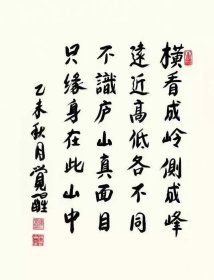 横看成岭側成峰
遠近高低各不同
不識庐山真面目
只缘身在此山中
乙未秋月覺醒